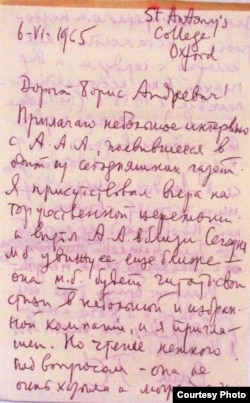 St. Antony's
College
Oxford
6-VI-1965
Дорогой Борис Андреевич!
Прилагаю небольшое интервью
с А.А.А., появившееся в
одной из сегодняшних газет.
Я присутствовал вчера на
торжественной церемонии
и видел А.А. вблизи. Сегодня
м.б. увижу ее еще ближе –
она м.б. будет читать свои
стихи в небольшой и избран-
ной компании, и я пригла-
шен. Но чтение немного
под вопросом – она не
очень хорошо
Courtesy Photo